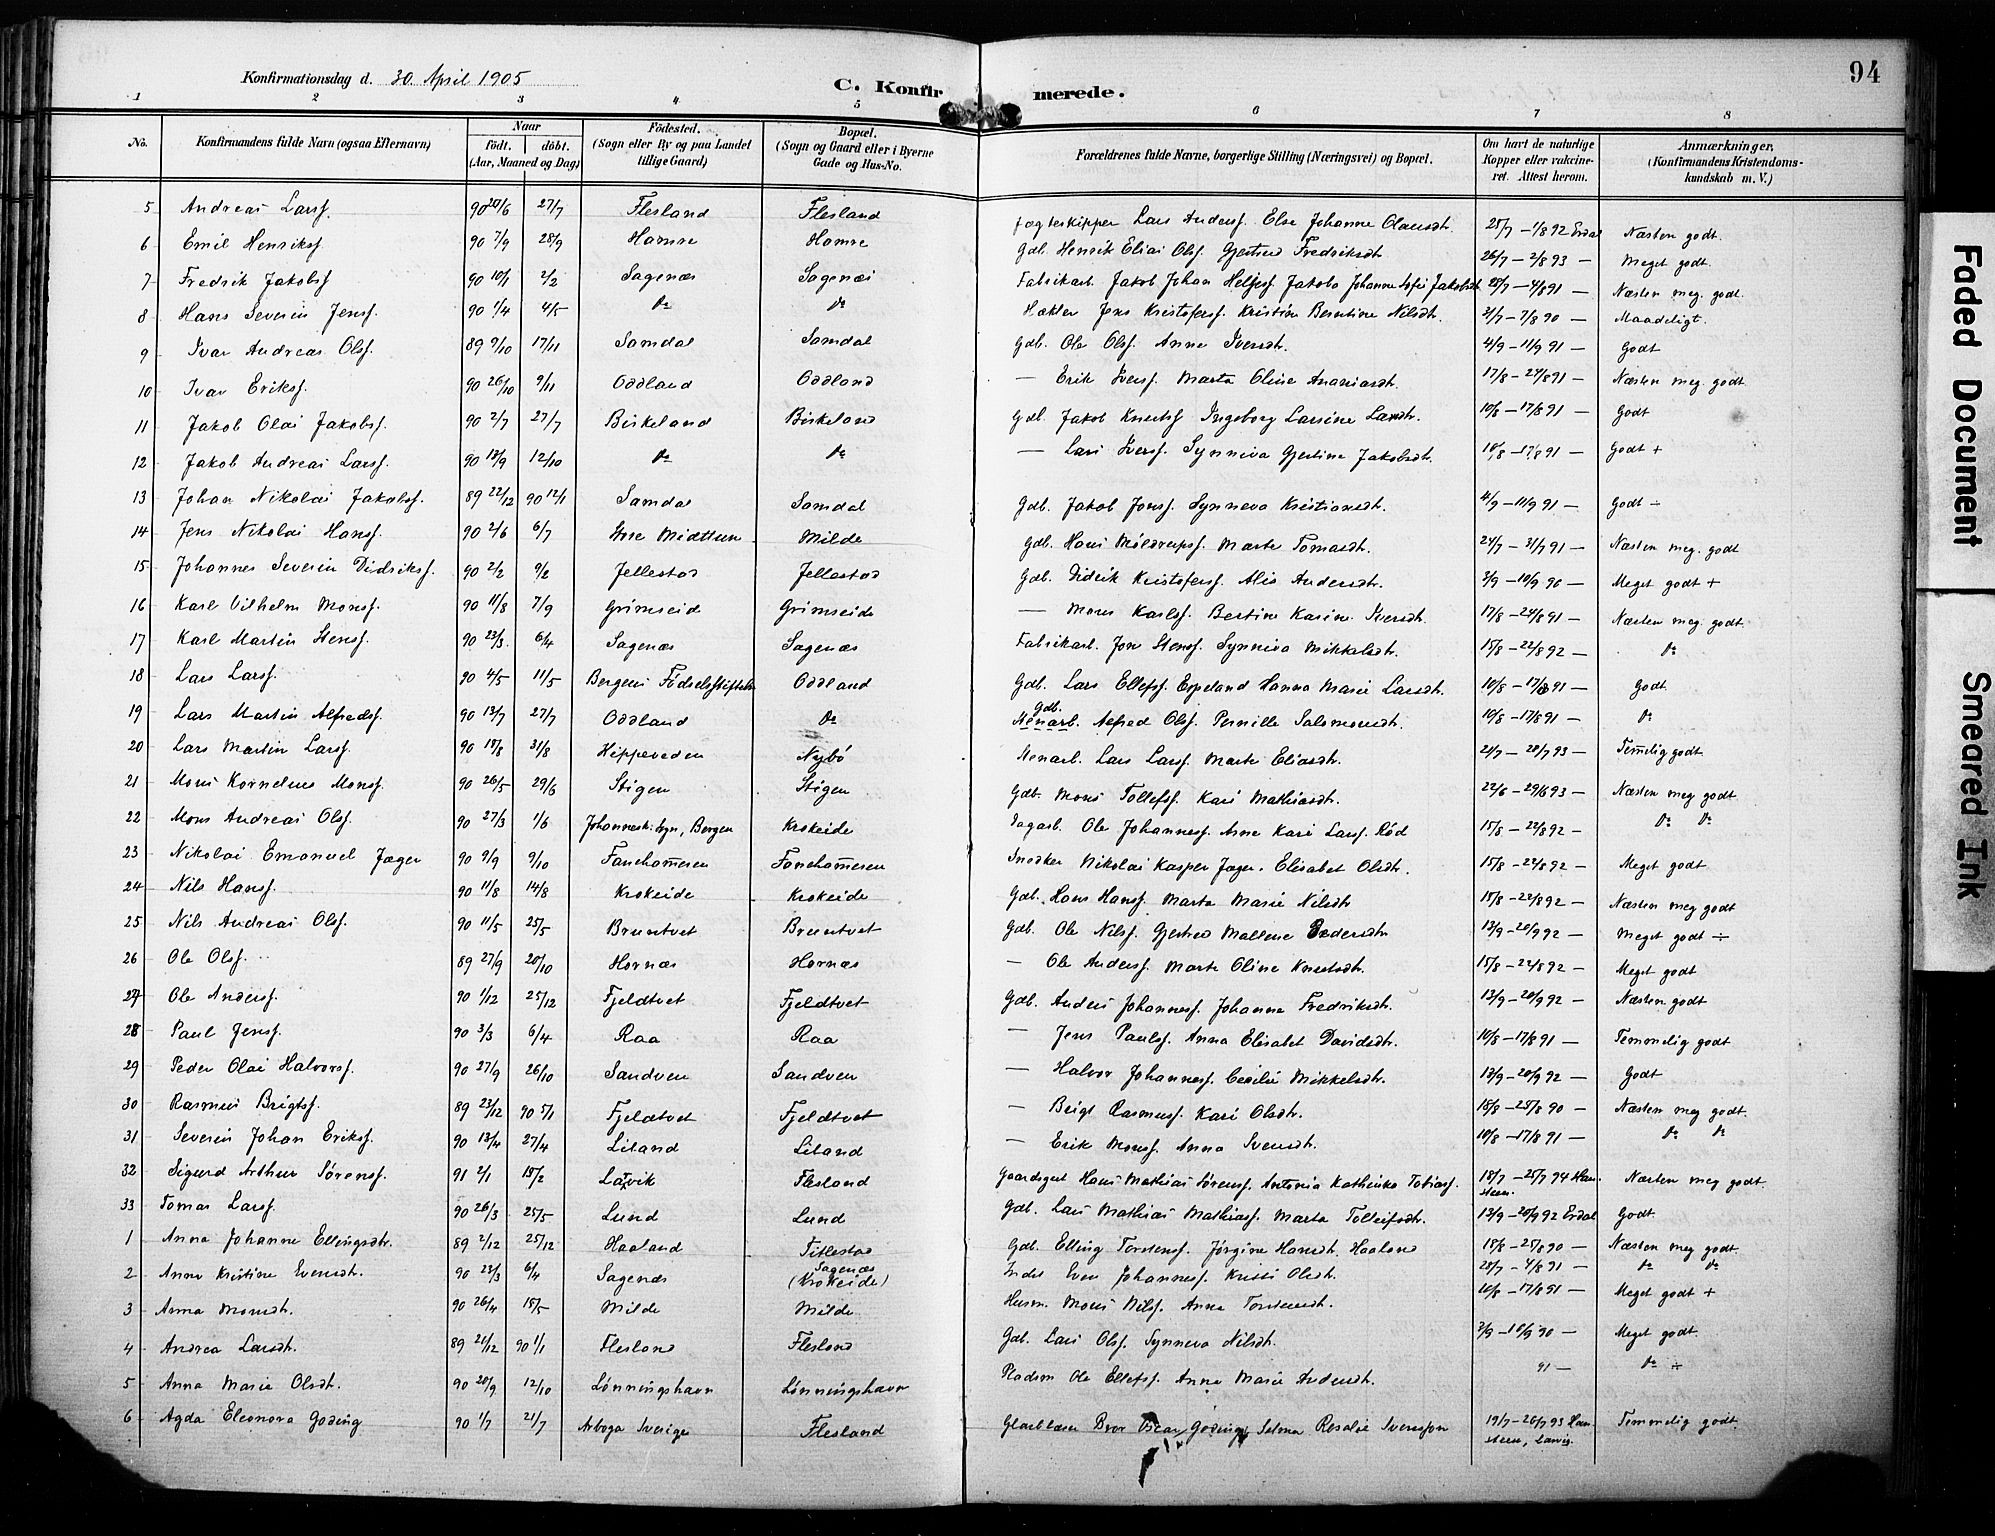 Konfirmationsdag d. 30. April 1905
C. Konfirmerede.
94
1 2 3 4 5 6 7 8
No. Konfirmandens fulde Navn (ogsaa Efternavn) Naar født. døbt. (Aar, Maaned og Dag) Födested. (Sogn eller By og paa Landet tillige Gaard) Bopæl. (Sogn og Gaard eller i Byerne Gade og Hus-No. Forældrenes fulde Navne, borgerlige Stilling (Næringsvei) og Bopæl. Om havt de naturlige Kopper eller vakcineret. Attest herom. Anmærkninger, (Konfirmandens Kristendomskundskab m. V.)
5 Andreas Larsf. 90 20/6 27/7 Flesland Flesland Jægteskipper Lars Andersf. Else Johanne Olausdt. 25/7 – 1/8 92 Erdal Næsten godt.
6 Emil Henriksf. 90 7/9 28/9 Hamre Hamre Gdb. Henrik Eliai Olsf. Gjertrud Fredriksdt 26/7 – 2/8 93 — Meget godt.
7 Fredrik Jakobsf 90 10/1 2/2 Sagenæs Sagenæs Fabrikarb. Jakob Johan Jakoba Johanne Sofie Jakobsdt 28/7 – 4/8 91 — Næsten meg. godt.
8 Hans Severin Jensf. 90 1/4 4/5 do do Jens Kristofersf. Kristine Berntine Nilsdt. 31/7 – 7/8 90 — Maadeligt.
9 Ivar Andreas Olsf. 89 9/10 17/11 Samdal Samdal Gdb. Ole Olsf. Anna Iversdt. 4/9 – 11/9 91 — Godt
10 Ivar Eriksf. 90 26/10 9/11 Oddland Oddland — Erik Iversf. Marta Oline Ananiasdt. 17/8 – 24/8 91 — Næsten meg. godt
11 Jakob Olai Jakobsf. 90 2/7 27/7 Birkeland Birkeland Gdb. Jakob Knutsf Ingeborg Larsine Larsdt. 10/8 – 17/8 91 — Godt
12 Jakob Andreas Larsf. 90 18/9 12/10 do do — Lars Iversf. Synneva Gjertine Jakobsdt. 10/8 – 17/8 91 — Godt +
13 Johan Nikolai Jakobsf. 89 22/12 90 12/1 Samdal Samdal Gdb. Jakob Jonsf. Synneva Kristiansdt. 4/9 – 11/9 91 — Godt ÷
14 Jens Nikolai Hansf. 90 2/6 6/7 Store Midttun Milde Gdb. Hans Marta Tomasdt. 24/7 – 31/7 91 — Næsten meg. godt
15 Johannes Severin Didriksf. 90 2/2 9/2 Jellestad Jellestad Gdb. Didrik Kristofersf. Alis Andersdt. 3/9 – 10/9 90 — Meget godt +
16 Karl Vilhelm Monsf. 90 11/8 7/9 Grimseid Grimseide — Mons Karlsf. Bertine Karine Iversdt. 17/8 – 24/8 91 — Næsten meg. godt.
17 Karl Martin Stensf. 90 23/3 6/4 Sagenæs Sagenæs Fabrikarb. Jon Stensf. Synneva Mikkelsdt. 15/8 – 22/8 92 — do
18 Lars Larsf. 90 4/5 11/5 Bergens Födselsstiftelse Oddland Gdb. Lars Ellefsf. Espeland Hanna Marie Larsdt. 10/8 – 17/8 91 — Godt
19 Lars Martin Alfredsf. 90 13/7 27/7 Oddland do Gdb. Alfred Olsf. Pernille Salomonsdt. 10/8 – 17/8 91 — do
20 Lars Martin Larsf. 90 18/8 31/8 Hippeveden Nybö Menarb. Lars Larsf. Marta Eliasdt. 21/7 – 28/7 93 — Temelig godt
21 Mons Kornelius Monsf. 90 26/5 29/6 Stigen Stigen Gdb. Mons Tollefsf. Kari Mathiasdt. 22/6 – 29/6 93 — Næsten meg godt
22 Mons Andreas Olsf. 90 27/3 1/6 Johannesk. sogn, Bergen Krokeide Dagarb. Ole Johannesf. Anne Kari Larsf. Röd 15/8 – 22/8 92 — do do
23 Nikolai Emanuel Jæger 90 9/9 9/10 Fanehameren Fanehameren Snedker Nikolai Kasper Jæger. Elisabet Olsdt. 15/8 – 22/8 92 — Meget godt
24 Nils Hansf. 90 11/8 14/8 Krokeide Krokeide Gdb. Hans Hansf Marta Marie Nilsdt 15/8 – 22/8 92 — Næsten meg godt
25 Nils Andreas Olsf. 90 11/5 25/5 Bruntvet Bruntvet Gdb. Ole Nilsf. Gjertrud Mallene Pedersdt 13/9 – 20/9 92 — Meget godt ÷
26 Ole Olsf. 89 27/9 20/10 Hornæs Hornæs — Ole Andersf. Marta Oline Knutsdt. 15/8 – 22/8 92 — Meget godt
27 Ole Andersf. 90 1/12 25/12 Fjeldtvet Fjeldtvet Gdb. Anders Johannesf. Johanna Fredriksdt. 13/9 – 20/9 92 — Næsten godt
28 Paul Jensf. 90 3/3 6/4 Raa Raa — Jens Paulsf. Anna Elisabet Davidsdt. 10/8 – 17/8 91 — Temmelig godt
29 Peder Olai Halvorsf. 90 27/9 26/10 Sandven Sandven — Halvor Johannesf. Cecilie Mikkelsdt. 13/9 – 20/9 92 — Godt
30 Rasmus Brigtsf. 89 23/12 90 5/1 Fjeldtvet Fjeldtvet — Brigt Rasmusf. Kari Olsdt. 18/8 – 25/8 90 — Næsten meg godt.
31 Severin Johan Eriksf. 90 13/4 27/4 Liland Liland — Erik Monsf. Anna Svensdt. 10/8 – 17/8 91 — do do
32 Sigurd Arthur Sörensf. 91 2/1 15/2 Larvik Flesland Gaardsgut Hans Mathias Sörensf. Antonia Kathinka Tobiasf. 18/7 – 25/7 94 Hansteen. Næsten meg godt.
33 Tomas Larsf. 90 26/3 25/5 Lund Lund Gdb. Lars Mathias Mathiasf. Marta Tolleifsdt. 13/9 – 20/9 92 Erdal Godt.
1 Anna Johanne Ellingsdtr. 89 2/12 25/12 Haaland Titlestad Gdb. Elling Torstensf. Jörgine Hansdt. Haaland 18/8 – 25/8 90 — Næsten meg godt
2 Anna Kristine Evensdt. 90 23/3 6/4 Sagenæs Sagenæs (Krokeide) Inds Even Johannesf. Kristi Olsdt. 28/7 – 4/8 91 — do do
3 Anna Monsdt. 90 26/4 15/5 Milde Milde Husm. Mons Nilsf. Anna Torstensdt. 10/8 – 17/8 91 — Meget godt +
4 Andrea Larsdt. 89 21/12 90 1/1 Flesland Flesland Gdb. Lars Olsf. Synneva Nilsdt. 3/9 – 10/9 90 — Meget godt.
5 Anna Marie Olsdt. 90 20/9 12/10 Lönningshavn Lönningshavn Pladsm Ole Ellefsf. Anna Marie Andersdt. 91 — do ÷
6 Agda Eleonora Goding 90 1/7 21/7 Arboga Sverige Flesland Glasblæser Bror Oscar Goding, Selma Rosalie Svensson 19/7 – 26/7 93 Hansteen, Larvig. Temmelig godt
Faded Document
Smeared Ink